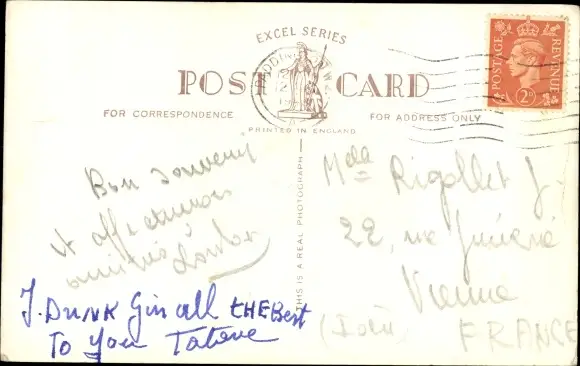 EXCEL SERIES
PADDINGTON W2
POST CARD
FOR CORRESPONDENCE
FOR ADDRESS ONLY
PRINTED IN ENGLAND
THIS IS A REAL PHOTOGRAPH
POSTAGE REVENUE
2D
Bon souvenir
et affectueuses
amitiés
J. DUNK Gin all tHE Best
To You Tatave
Rigollet J.
22, rue
Vienne
(Isère) FRANCE